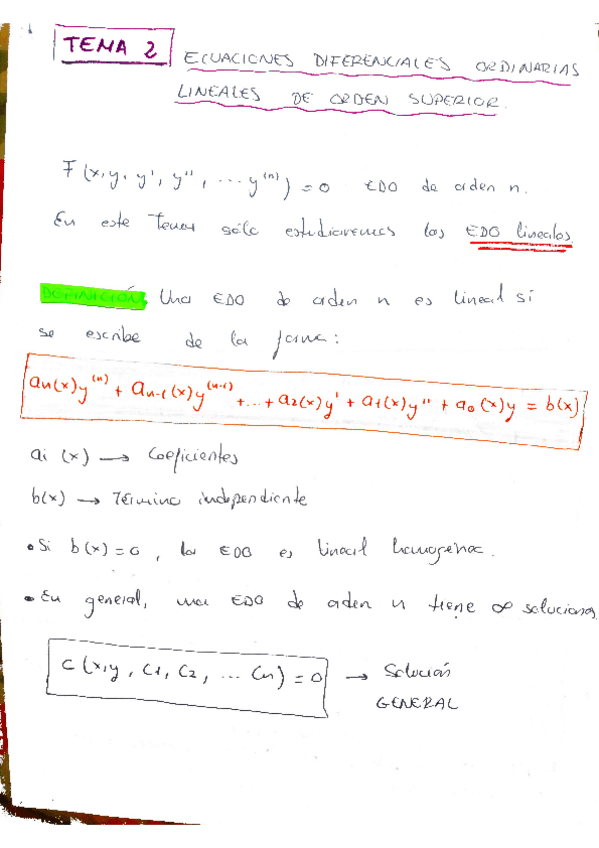 TEMA 2
ECUACIONES DIFERENCIALES ORDINARIAS
LINEALES DE ORDEN SUPERIOR.
F(x,y,y',y'',...y⁽ⁿ⁾)=0 EDO de orden n.
En este Tema sólo estudiaremos las EDO lineales
DEFINICIÓN Una EDO de orden n es lineal si
se escribe de la forma:
an(x)y⁽ⁿ⁾ + an-1(x)y⁽ⁿ⁻¹⁾ +...+ a2(x)y' + a1(x)y'' + a0(x)y = b(x)
ai (x) → Coeficientes
b(x) → Término independiente
• Si b(x)=0, la EDO es lineal homogénea.
• En general, una EDO de orden n tiene ∞ soluciones
C(x,y, C1, C2, ... Cn)=0 → Solución
GENERAL